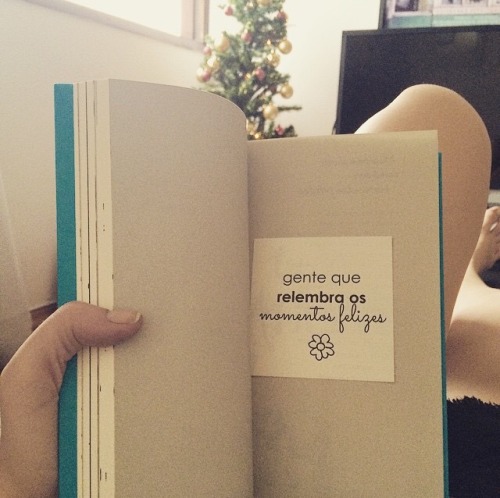 gente que
relembra os
momentos felizes